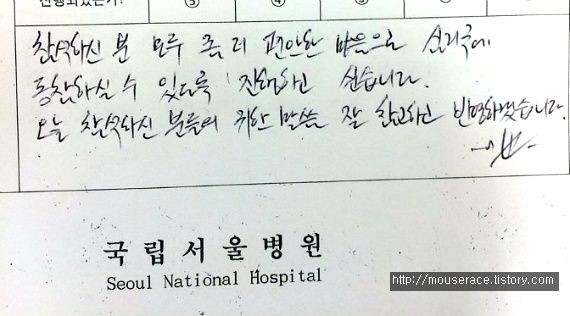 진행되었는가? ⑤ ④ ③
참석하신 분 모두 좀 더 편안한 마음으로 심리극에
동참하실 수 있도록 진행하고 싶습니다.
오늘 참석하신 분들의 귀한 말씀 잘 참고하고 반영하겠습니다.
국립서울병원
Seoul National Hospital
http://mouserace.tistory.com